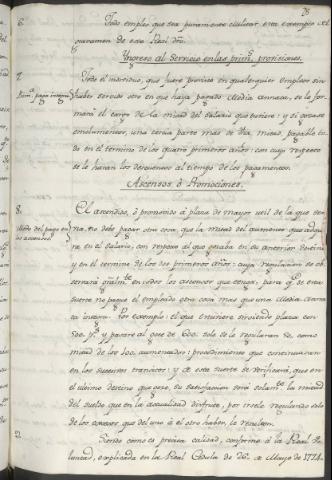 6.
Todo empleo que sea puramente Militar está exempto de
Ingreso al Servicio en las prim.s provisiones.
7.
Todo el individuo, que fuere provisto en qualquier empleo sin
haber servido otro en que haya pagado Media annata, se le for-
mará el cargo de la mitad del salario que tuviere: y si gozase
emolumentos, una tercia parte mas de dha mitad pagable to-
do en el termino de los quatro primeros años: con cuyo respecto
se le harán los descuentos al tiempo de los pagamentos.
Ascensos, ó Promociones.
8.
Modo del pago en
los ascendidos
El ascendido, ó promovido á plaza de mayor
no debe pagar otra cosa, que la mitad del aumento que adqui-
era en el salario, con respecto al que gozaba en su anterior destino
y en el termino de los dos primeros años: cuya regulacion se ob-
servará en todos los ascensos que tenga; para q.e de esta
suerte no pague el empleado otra cosa mas que una Media anna-
ta entera. Por exemplo: el que estuviere sirviendo plaza con
500 p.s y pasare al goce de 600. solo se le regularán 50. como
mitad de los 100. aumentados: procedimiento que continuará
en los sucesivos transitos: y de esta suerte se verificará, que en
el ultimo destino que goze, su satisfaccion será solam.te la mitad
del sueldo que en la actualidad disfrute, por irsele regulando solo
de los excesos que del uno á el otro haber, le resulten.
2.
Siendo como es precisa calidad, conforme á la Real Vo-
luntad, explicada en la Real Cedula de 26. de Mayo de 1774.